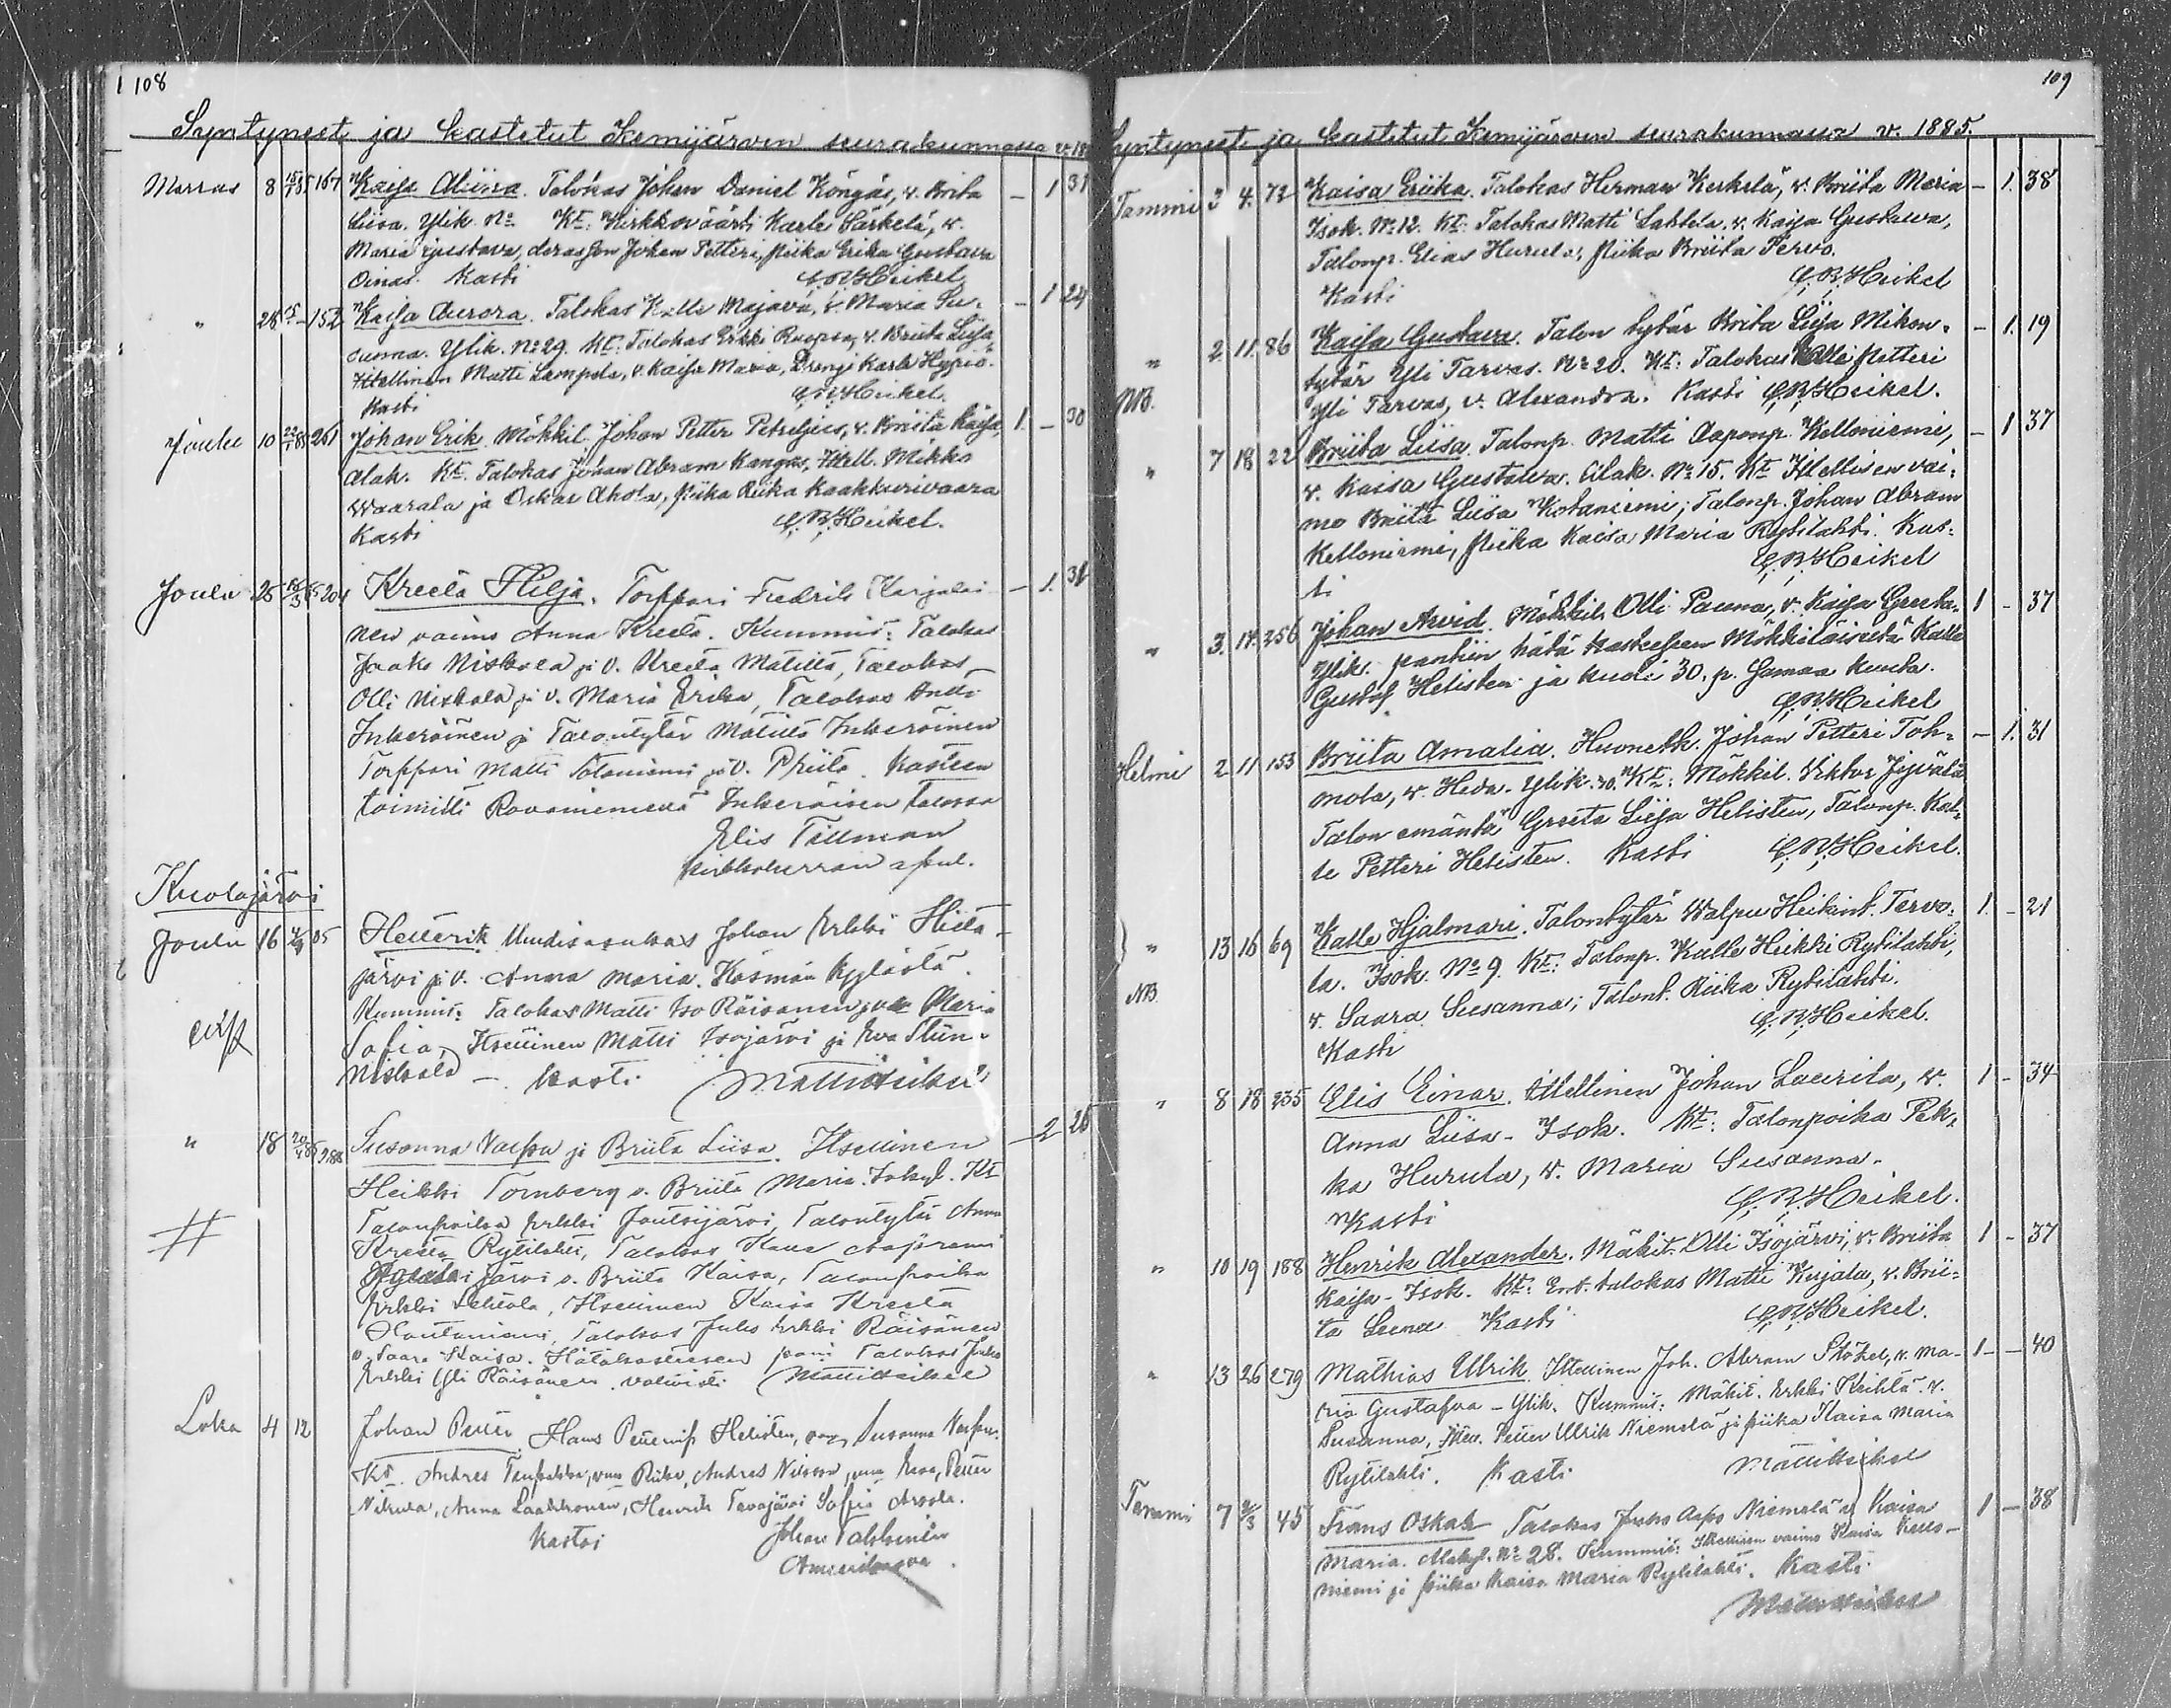 108
Syntyneet ja kastetut Kemijärven seurakunnassa v. 18
Marras 8 15/1 85 167 Kaisa Aliira. Talokas Johan Daniel Köngäs, v. Briita — 1 31
Liisa. Ylik. No Kt: Kirkkoväärti Karle Särkelä, v.
Maria Gustava, Johan Petteri, Piika Erika Gustava
Oinas. Kasti C.R.Heikel
" 26 15 — 152 Kaisa Aurora. Talokas Kalle Majava, v. Maria Su- — 1 24
sanna. Ylik. No 29. Kt: Talokas Erkki Ruopsa, v. Briita Liisa,
Itsellinen Matti Lampela, v. Kaisa Maria, Drengi Karle Hyypiö.
Kasti C.R.Heikel.
Joulu 10 22/1 85 261 Johan Erik. Mökkil. Johan Petter Petreljus, v. Briita Kaisa, 1. — 30
Alak. Kt. Talokas Johan Abram Kangas, Itsell. Mikko
Waarala ja Oskar Ahola, Piika Riika Kaakkurivaara
Kasti C.R.Heikel.
Joulu 25 204 Kreeta Hilja. Torppari Fredrik Karjalai- — 1. 31
nen vaimo Anna Kreeta. Kummit: Talokas
Jaako Niskala ja v. Kreeta Matilta, Talokas
Olli Niskala ja v. Maria Erika, Talokas Antti
Inkeröinen ja Talontytär Matilta Inkeröinen
Torppari Matti Sotaniemi ja v. Priita. Kasteen
toimitti Rovaniemellä Inkeröisen talossa
Elis Tillman
kirkkoherran apul.
Kuolajärvi
Joulu 16 85 Henerik Uudisasukas Johan Erkki Hieta-
järvi ja v. Anna Maria. Käsmän kylästä.
Kummit: Talokas Matti Iso Räisänen ja v. Maria
Sofia, Itsellinen Matti Isojärvi ja Eva Stiin-
Niskala —. Kasti. Matti Heikel
" 18 20/4 85 Susanna Valpu ja Briita Liisa. Itsellinen — 2 25
Heikki Tornberg v. Briita Maria. Isokyl. Kt
Talonpoika Erkki Joutsijärvi, Talontytär Anna
Kreeta Rytilahti, Talokas Kalle
järvi v. Briita Kaisa, Talonpoika
Erkki Lehtola, Itsellinen Kaisa Kreeta
Hautaniemi, Talokas Juho Erkki Räisänen
v. Saara Kaisa. Hätäkasteesen pani Talokas Juho
Erkki Yli Räisänen. valvisti Matti Heikel
Loka 4 12 Johan Petter Hans Petterinp. Helisten, v. Susanna Valpu.
Kt. Andres v. Riika, Andres Niskala, v. Eeva, Petter
Nikula, Anna Laakkonen, Henrik Tavajärvi Sofia
Kastoi Johan Takkinen
Amerikassa.
109
Syntyneet ja kastetut Kemijärven seurakunnassa v. 1885.
Tammi 3 4. 72 Kaisa Eriika. Talokas Herman Kerkelä, v. Briita Maria — 1. 38
Isok. No 12. Kt: Talokas Matti Lahtela, v. Kaisa Gustava,
Talonp. Elias Hurula, Piika Briita Pervo.
Kasti C.R.Heikel
" 2 11 86 Kaisa Gustava. Talon tytär Briita Liisa Mikon- — 1. 19
tytär Yli Tarvas. No 20. Kt: Talokas Kalle Petteri
NB. Yli Tarvas, v. Alexandra. Kasti C.R.Heikel.
" 7 18 22 Briita Liisa. Talonp. Matti Aaponp. Kelloniemi, — 1 37
v. Kaisa Gustava. Alak. No 15. Kt Itsellisen vai-
mo Briita Liisa Kotaniemi; Talonp. Johan Abram
Kelloniemi, Piika Kaisa Maria Rytilahti. Kas-
ti C.R.Heikel
" 3. 17. 256 Johan Arvid. Mökkil. Olli Pauna, v. Kaisa Greeta. 1 — 37
Ylik. pantiin hätä kasteesen Mökkiläiseltä Kalle
Gustaf Helisten ja kuoli 30. p. samaa kuuta.
C.R.Heikel
Helmi 2 11 153 Briita Amalia. Huonehk. Johan Petteri Toh- — 1. 31
mola, v. Heda. Ylik. 30. Kt: Mökkil. Viktor Jyvälä
Talon emäntä Greeta Liisa Helisten, Talonp. Kal-
le Petteri Helisten. Kasti C.R.Heikel.
" 13 16 69 Kalle Hjalmari. Talontytär Walpu Heikint. Tervo- 1. — 21
la. Isok. No 9. Kt: Talonp. Kalle Heikki Rytilahti,
NB v. Saara Susanna; Talont. Riika Rytilahti.
Kasti C.R.Heikel.
" 8 18 235 Elis Einar. Itsellinen Johan Laurila, v. 1 — 34
Anna Liisa. Isok. Kt: Talonpoika Pek-
ka Hurula, v. Maria Susanna.
Kasti C.R.Heikel.
" 10 19 188 Henrik Alexander. Mäkit. Olli Isojärvi, v. Briita 1 — 37
Kaisa. Isok. Kt: Ent. talokas Matti Kujala, v. Brii-
ta Leena Kasti C.R.Heikel.
" 13 26 279 Mathias Ulrik. Itsellinen Joh. Abram Stökel, v. Ma- 1 — 40
ria Gustafva — Ylik. Kummit: Mäkit. Erkki v.
Susanna, Itsell. Petter Ulrik Niemelä ja piika Kaisa Maria
Rytilahti. Kasti. Matti Heikel
Tammi 7 9/3 45 Frans Oskar Talokas Juho Aapo Niemelä v. Kaisa 1 — 38
Maria. Alakyl. No 28. Kummit: Itsellisen vaimo Kaisa Kello-
niemi ja piika Kaisa Maria Rytilahti. Kasti.
Matti Heikel